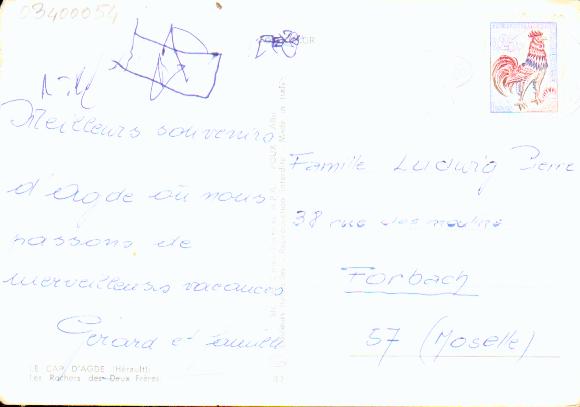 03400054
Meilleurs souvenirs
d'Agde où nous
passons de
merveilleuses vacances
Gérard et famille
Famille Ludwig Pierre
38 rue des moulins
Forbach
57 (Moselle)
LE CAP D'AGDE (Hérault)
Les Rochers des Deux Frères